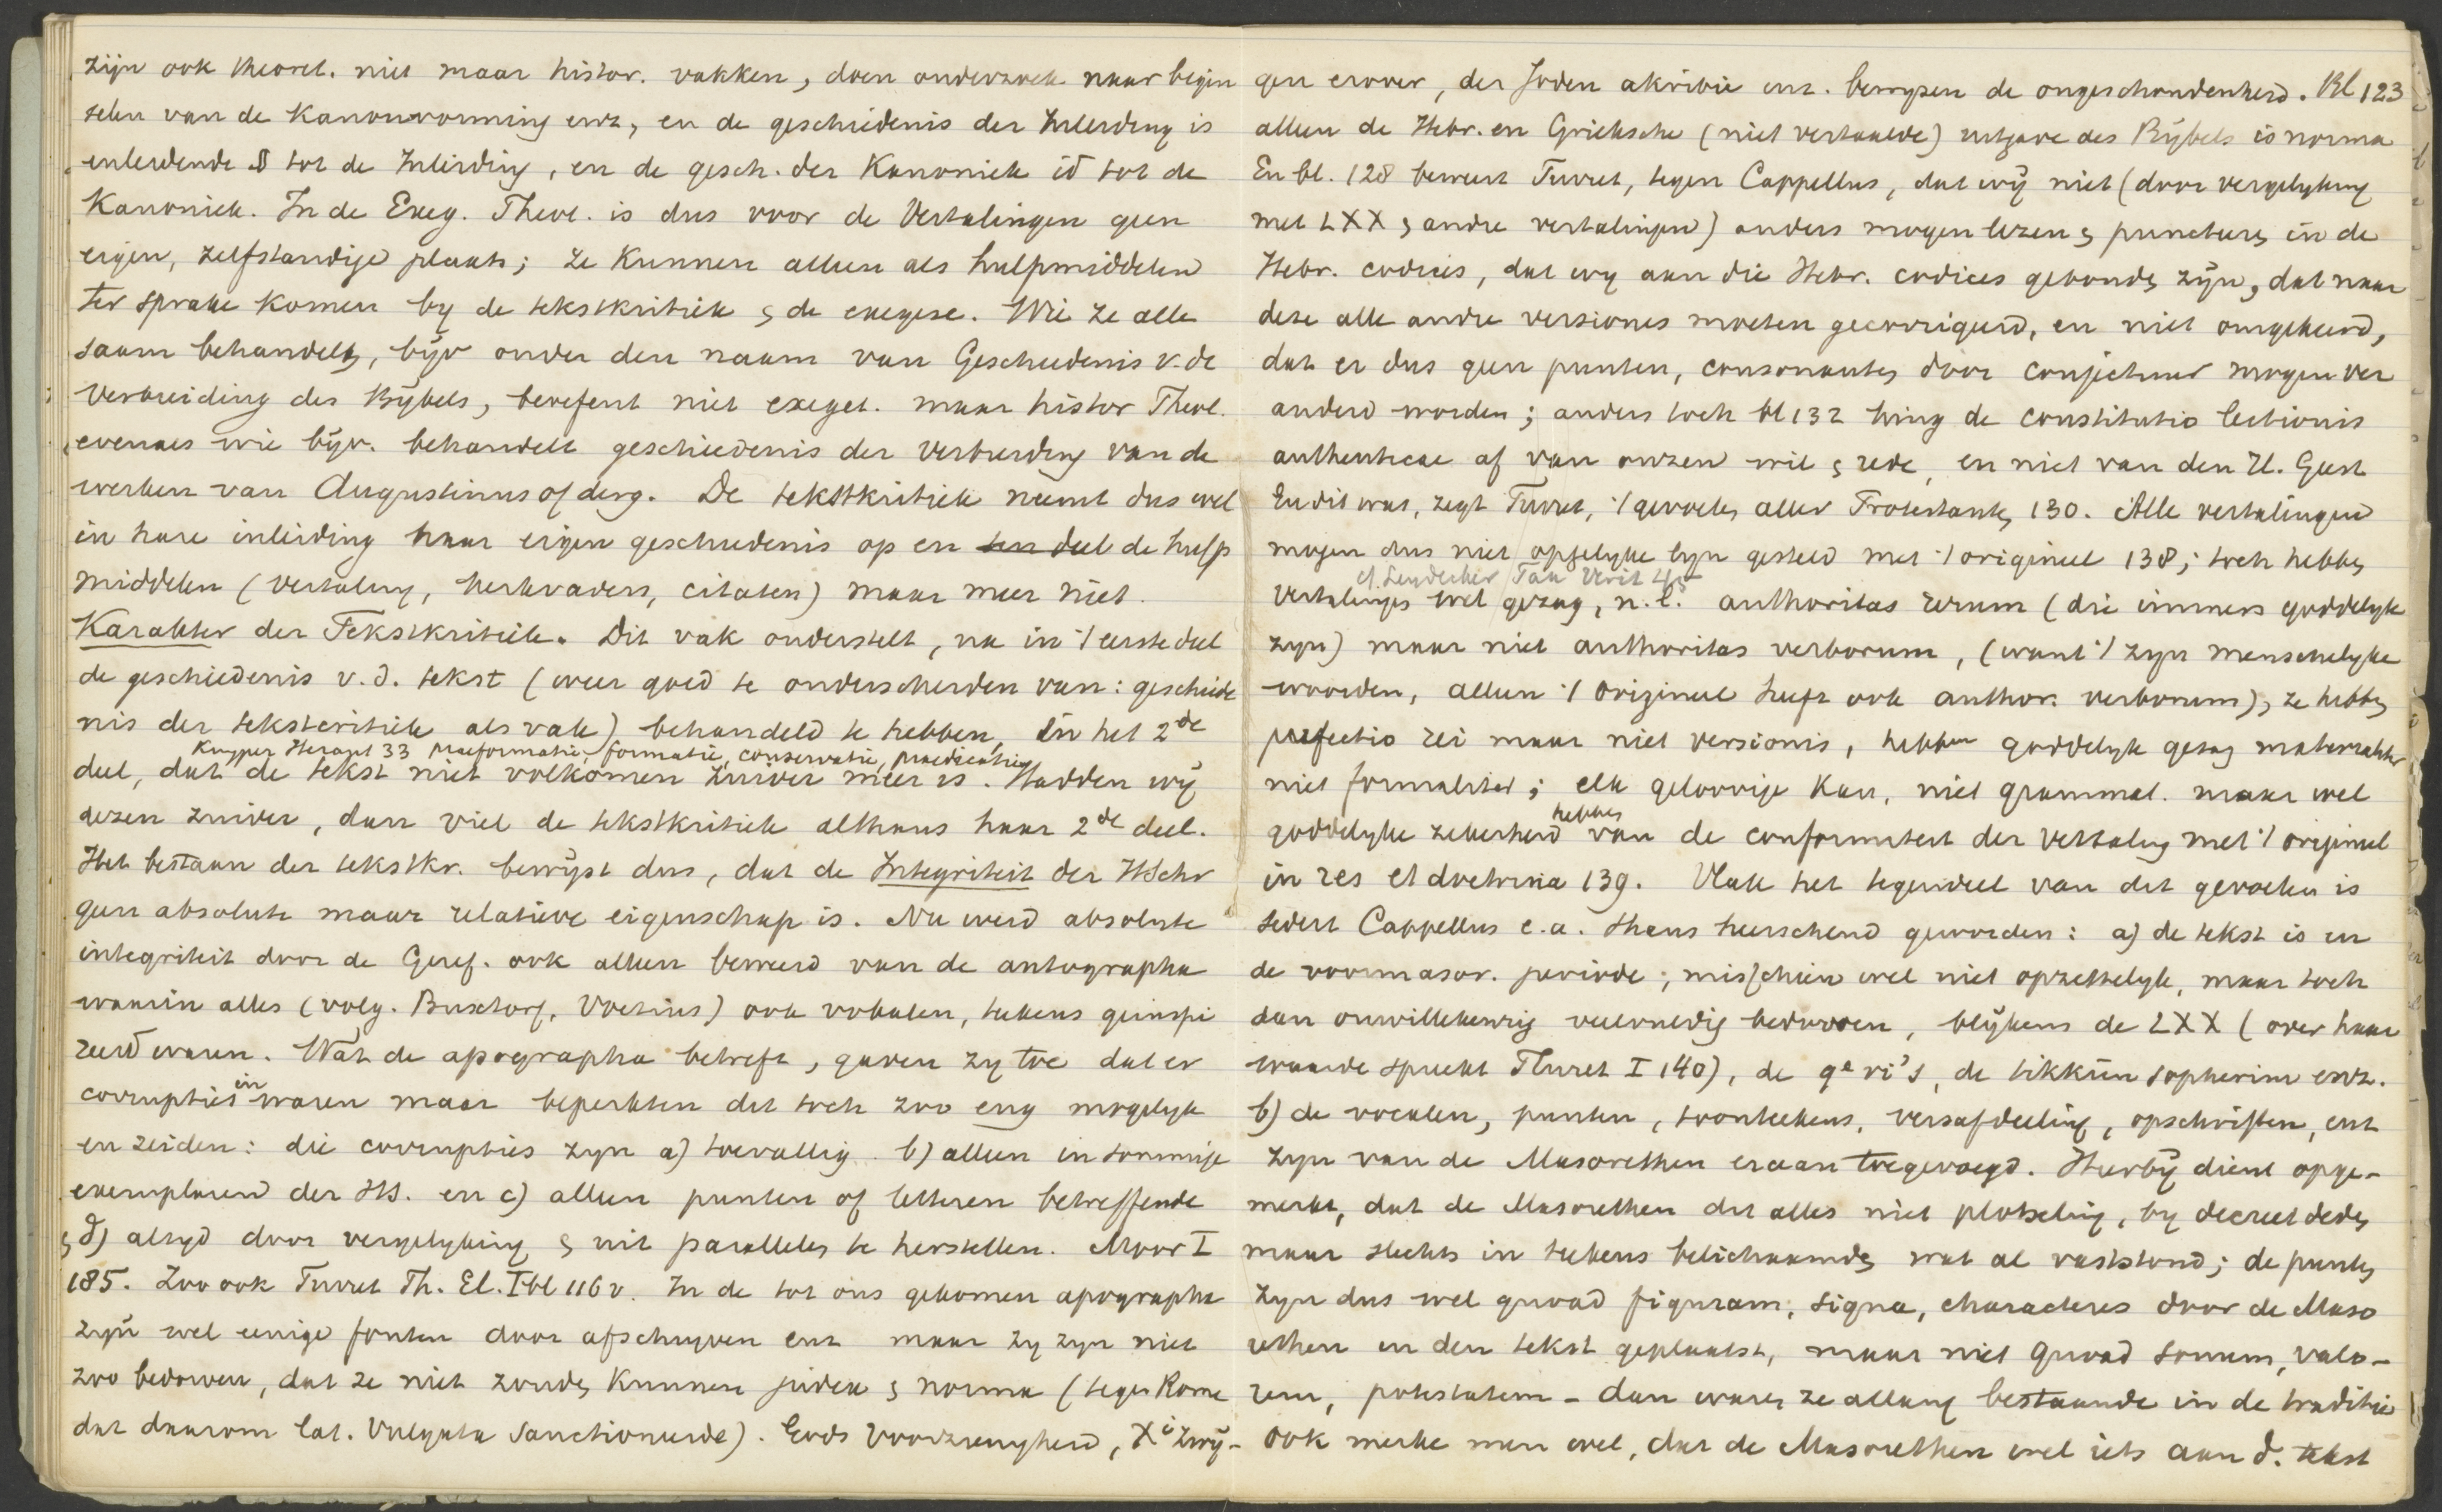 zijn ook theoret. niet maar histor. vakken, doen onderzoek naar begin
selen van de Kanonvorming enz, en de geschiedenis der Inleiding is
inleidende § tot de Inleiding, en de gesch. der Kanoniek id tot de
Kanoniek. In de Exeg. Theol. is dus voor de Vertalingen geen
eigen, zelfstandige plaats; ze Kunnen alleen als hulpmiddelen
ter sprake komen by de tekstkritiek & de exegese. Wie ze alle
saam behandelt, bijv onder den naam van Geschiedenis v. de
Verbreiding des Bijbels, beoefent niet exeget. maar histor Theol.
evenals wie bijv. behandelt geschiedenis der Verbreiding van de
werken van Augustinus of derg. De tekstkritiek neemt dus wel
in hare inleiding haar eigen geschiedenis op en ten deel de hulp
middelen (Vertaling, kerkvaders, citaten) maar meer niet.
Karakter der Tekstkritiek. Dit vak onderstelt, na in 't eerste deel
de geschiedenis v. d. tekst (weer goed te onderscheiden van: geschiede
nis der tekstcritiek als vak) behandeld te hebben, in het 2de
Kuyper Heraut 33 praeformatie, formatie, conservatie, praedicatie
deel, dat de tekst niet volkomen zuiver meer is. Hadden wij
dezen zuiver, dan viel de tekstkritiek althans haar 2de deel.
Het bestaan der tekstkr. bewijst dus, dat de Integriteit der HSchr
geen absolute maar relatieve eigenschap is. Nu werd absolute
integriteit door de Geref. ook alleen beweerd van de autographa
waarin alles (volg. Buxtorf, Voetius) ook vokalen, tekens geinspi
reerd waren. Wat de apographa betreft, gaven zy toe dat er
corrupties in waren maar beperkten dit toch zoo eng mogelyk
en zeiden: die corrupties zyn a) toevallig. b) alleen in sommige
exemplaren der HS. en c) alleen punten of letteren betreffende
& d) altyd door vergelyking & uit parallelen te herstellen. Moor I
185. Zoo ook Turret Th. El. I bl 116 v. In de tot ons gekomen apographa
zyn wel eenige fouten door afschryven enz maar zy zyn niet
zoo bedorven, dat ze niet zouden Kunnen judex & norma (tegen Rome
dat daarom lat. Vulgata sanctioneerde). Gods Voorzienigheid, Xi zwij-
gen erover, der Joden akribie enz. bewyzen de ongeschondenheid. Bl 123
alleen de Hebr. en Grieksche (niet vertaalde) uitgave des Bijbels is norma
En bl. 128 beweert Turret, tegen Cappellus, dat wij niet (door vergelyking
met LXX & andre vertalingen) anders mogen lezen & punctueren in de
Hebr. codices, dat wy aan die Hebr. codices gebonden zijn, dat naar
deze alle andre versiones moeten gecorrigeerd, en niet omgekeerd,
dat er dus geen punten, consonanten door conjectuur mogen ver
anderd worden; anders toch bl 132 hing de constitutio lectionis
authenticae af van onzen wil & rede, en niet van den H. Geest
En dit was, zegt Turret, 't gevoelen aller Protestanten 130. Alle vertalingen
mogen dus niet opgelyke lyn gesteld met 't origineel 138; toch hebben
cf. Leydecker Fax Verit 45
Vertalingen wel gezag, n.l. authoritas rerum (die immers goddelyk
zyn) maar niet authoritas verborum, (want 't zyn menschelyke
woorden, alleen 't origineel heeft ook author. verborum), ze hebben
perfectio rei maar niet versionis, hebben goddelyk gezag materialiter
niet formaliter; elk geloovige kan, niet grammat. maar wel
goddelyke zekerheid hebben van de conformiteit der vertaling met 't origineel
in res et doctrina 139. Vlak het tegendeel van dit gevoelen is
sedert Cappellus e.a. thans heerschend geworden: a) de tekst is in
de voormasor. periode; misschien wel niet opzettelyk, maar toch
dan onwillekeurig veelvuldig bedorven, blijkens de LXX (over haar
waarde spreekt Turret I 140), de qeri's, de tikkûn sopherim enz.
b) de vocalen, punten, toonteekens, versafdeeling, opschriften, enz
zyn van de Masorethen eraan toegevoegd. Hierbij dient opge-
merkt, dat de Masorethen dit alles niet plotseling, by decreet deden
maar slechts in teekens belichaamden wat al vaststond; de punten
zyn dus wel quoad figuram, signa, characteres door de Maso
rethen in den tekst geplaatst, maar niet quoad sonum, valo-
rem, potestatem - dan waren ze allang bestaande in de traditie
ook merke men wel, dat de Masorethen wel iets aan d. tekst